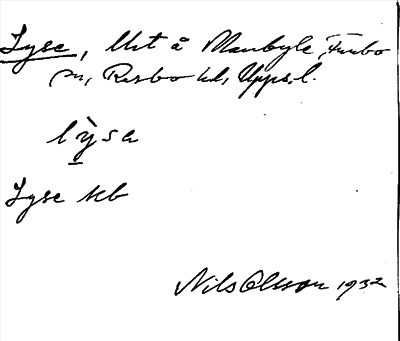 Lyse, Utt å Marbyle, Funbo
sn, Rasbo hd, Upps. l.
lỳsa
Lyse skb
Nils Olsson 1932